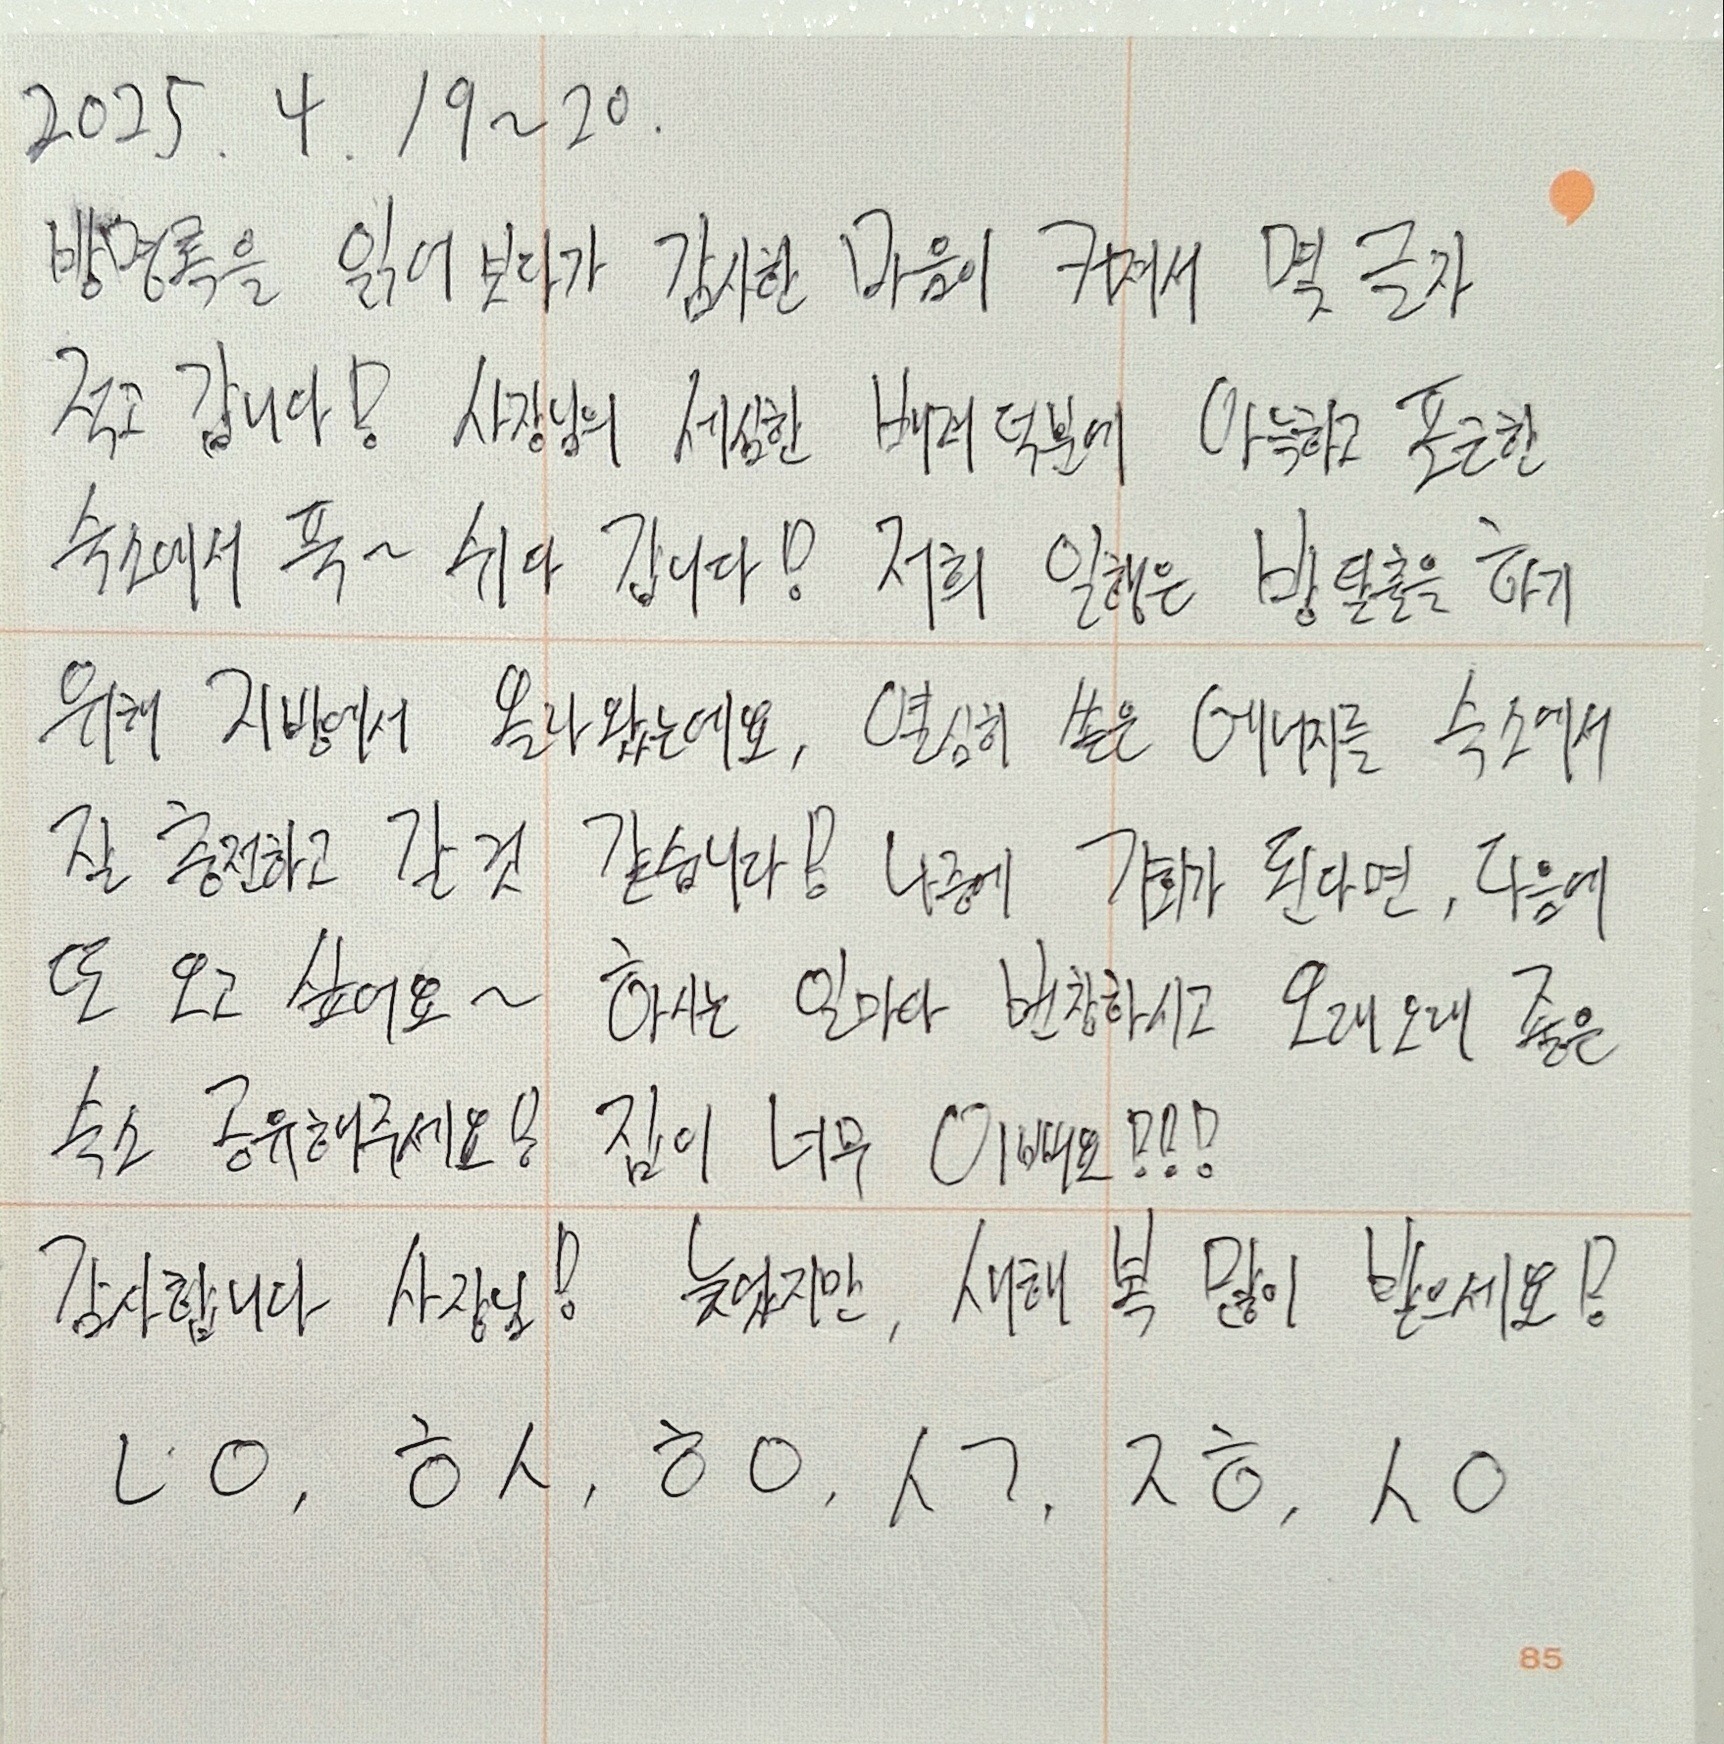 2025. 4. 19~20.
방명록을 읽어보다가 감사한 마음이 커져서 몇 글자
적고 갑니다! 사장님의 세심한 배려 덕분에 아늑하고 포근한
숙소에서 푹~ 쉬다 갑니다! 저희 일행은 방탈출을 하기
위해 지방에서 올라왔는데요, 열심히 쏟은 에너지를 숙소에서
잘 충전하고 갈 것 같습니다! 나중에 기회가 된다면, 다음에
또 오고 싶어요~ 하시는 일마다 번창하시고 오래오래 좋은
숙소 공유해주세요! 집이 너무 이뻐요!!!
감사합니다 사장님! 늦었지만, 새해 복 많이 받으세요!
ㄴㅇ, ㅎㅅ, ㅎㅇ, ㅅㄱ, ㅈㅎ, ㅅㅇ
85